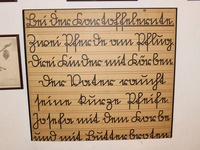 Bei der Kartoffelernte.
Zwei Pferde am Pflug.
Drei Kinder mit Körben.
der Vater raucht
seine kurze Pfeife.
Josefa mit dem Korbe
und mit Butterbroten